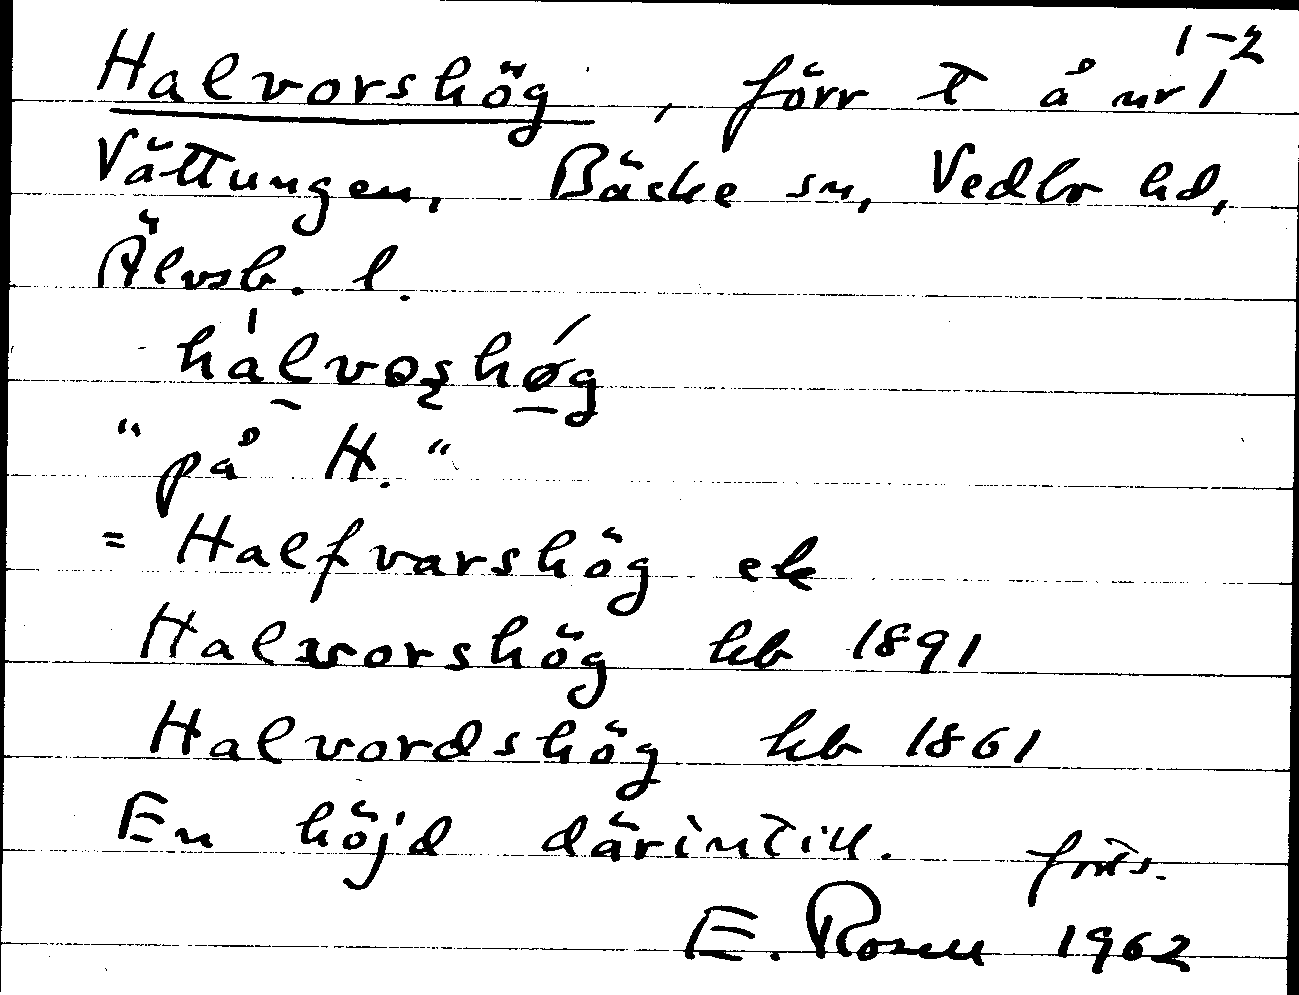 1-2
Halvorshög, förr t å nr 1
Vättungen, Bäcke sn, Vedbo hd,
Älvsb. l.
hálvoshǿg
"på H."
= Halfvarshög ek
Halvorshög hb 1891
Halvordshög hb 1861
En höjd därintill. forts.
E. Rosen 1962